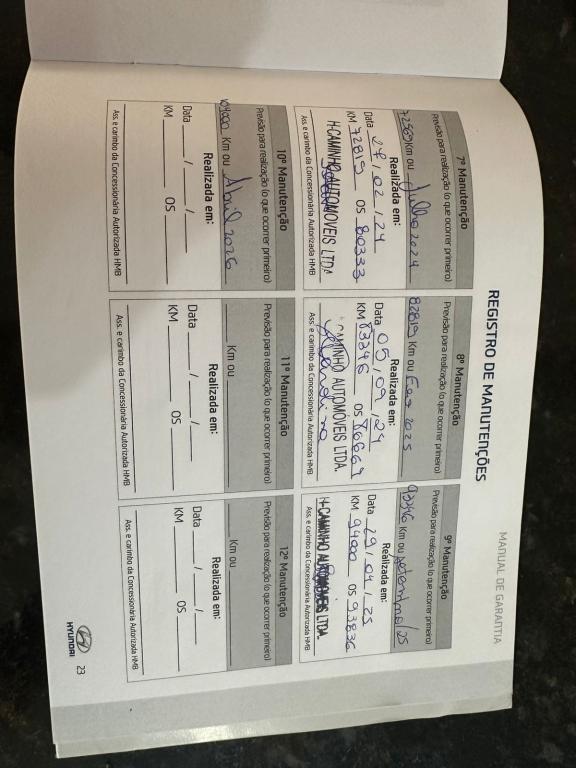 MANUAL DE GARANTIA
REGISTRO DE MANUTENÇÕES
7º Manutenção
Previsão para realização (o que ocorrer primeiro)
72565 Km ou Julho 2024
Realizada em:
Data 27 / 02 / 24
KM 72819 OS 80333
H-CAMINHO AUTOMOVEIS LTDA
Ass. e carimbo da Concessionária Autorizada HMB
8º Manutenção
Previsão para realização (o que ocorrer primeiro)
82819 Km ou Fev 2025
Realizada em:
Data 05 / 09 / 24
KM 83346 OS 86664
CAMINHO AUTOMÓVEIS LTDA.
Ass. e carimbo da Concessionária Autorizada HMB
9º Manutenção
Previsão para realização (o que ocorrer primeiro)
93346 Km ou setembro/25
Realizada em:
Data 29 / 04 / 25
KM 94000 OS 93836
H-CAMINHO AUTOMOVEIS LTDA.
Ass. e carimbo da Concessionária Autorizada HMB
10º Manutenção
Previsão para realização (o que ocorrer primeiro)
104000 Km ou Abril 2026
Realizada em:
Data ___ / ___ / ___
KM ______ OS ______
Ass. e carimbo da Concessionária Autorizada HMB
11º Manutenção
Previsão para realização (o que ocorrer primeiro)
______ Km ou ______
Realizada em:
Data ___ / ___ / ___
KM ______ OS ______
Ass. e carimbo da Concessionária Autorizada HMB
12º Manutenção
Previsão para realização (o que ocorrer primeiro)
______ Km ou ______
Realizada em:
Data ___ / ___ / ___
KM ______ OS ______
Ass. e carimbo da Concessionária Autorizada HMB
HYUNDAI
23